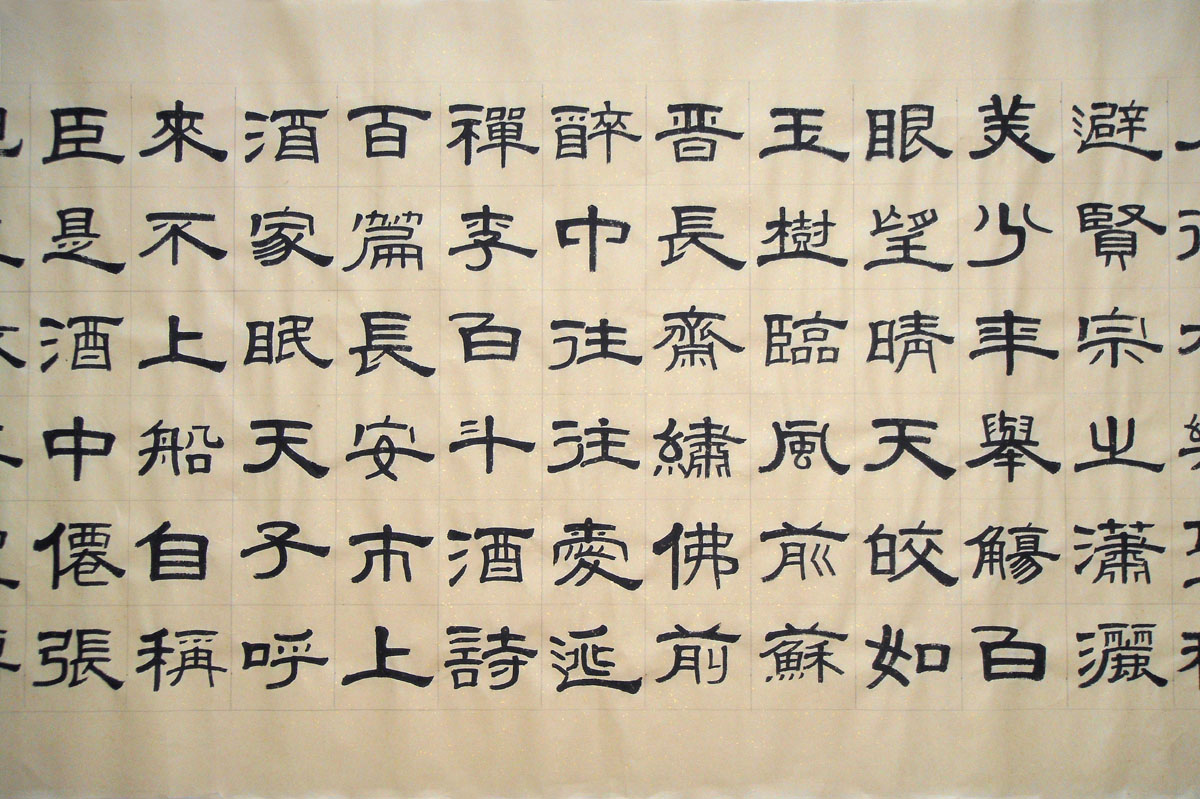 避賢宗之瀟灑
美少年舉觴白
眼望晴天皎如
玉樹臨風前蘇
晋長齋繡佛前
醉中往往愛逃
禪李白斗酒詩
百篇長安市上
酒家眠天子呼
來不上船自稱
臣是酒中僊張